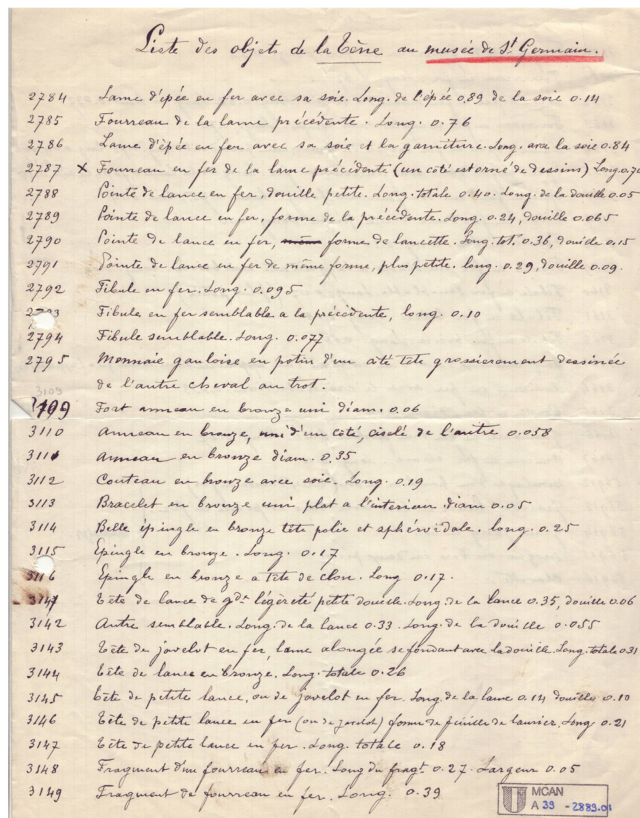 Liste des objets de la Tène au musée de St Germain.
2784 Lame d'épée en fer avec sa soie. Long. de l'épée 0,89 de la soie 0.14
2785 Fourreau de la lame précédente. Long. 0.76
2786 Lame d'épée en fer avec sa soie et la garniture. Long. avec la soie 0.84
2787 x Fourreau en fer de la lame précédente (un côté est orné de dessins) Long.
2788 Pointe de lance en fer, douille petite. Long. totale 0.40. Long. de la douille 0.05
2789 Pointe de lance en fer, forme de la précédente. Long. 0.24, douille 0.065
2790 Pointe de lance en fer, même forme de lancette. Long. tot. 0.36, douille 0.15
2791 Pointe de lance en fer de même forme, plus petite. long. 0.29, douille 0.09.
2792 Fibule en fer. Long. 0.095
2793 Fibule en fer semblable a la précédente, long. 0.10
2794 Fibule semblable. Long. 0.077
2795 Monnaie gauloise en potin d'un côté tete grossierement dessinée
de l'autre cheval au trot.
3109
3109 Fort anneau en bronze uni diam. 0.06
3110 Anneau en bronze, uni d'un côté, ciselé de l'autre 0.058
3111 Anneau en bronze diam. 0.35
3112 Couteau en bronze avec soie. Long. 0.19
3113 Bracelet en bronze uni plat a l'interieur diam 0.05
3114 Belle épingle en bronze tête polie et sphéroïdale. long. 0.25
3115 Epingle en bronze. Long. 0.17
3116 Epingle en bronze a tête de clou. Long 0.17.
3141 Tête de lance de gde légèreté petite douille. Long. de la lance 0.35, douille 0.06
3142 Autre semblable. Long. de la lance 0.33. Long. de la douille 0.055
3143 Tête de javelot en fer, lame alongée se fondant avec la douille. Long. totale 0.31
3144 Tête de lance en bronze. Long. totale 0.26
3145 Tête de petite lance, ou de javelot en fer. Long. de la lame 0.14 douille 0.10
3146 Tête de petite lance en fer (ou de javelot) forme de feuille de laurier. Long 0.21
3147 Tête de petite lance en fer. Long. totale 0.18
3148 Fragment d'un fourreau en fer. Long du fragt. 0.27. Largeur 0.05
3149 Fragment de fourreau en fer. Long. 0.39
MCAN
A 39 - 2889.01